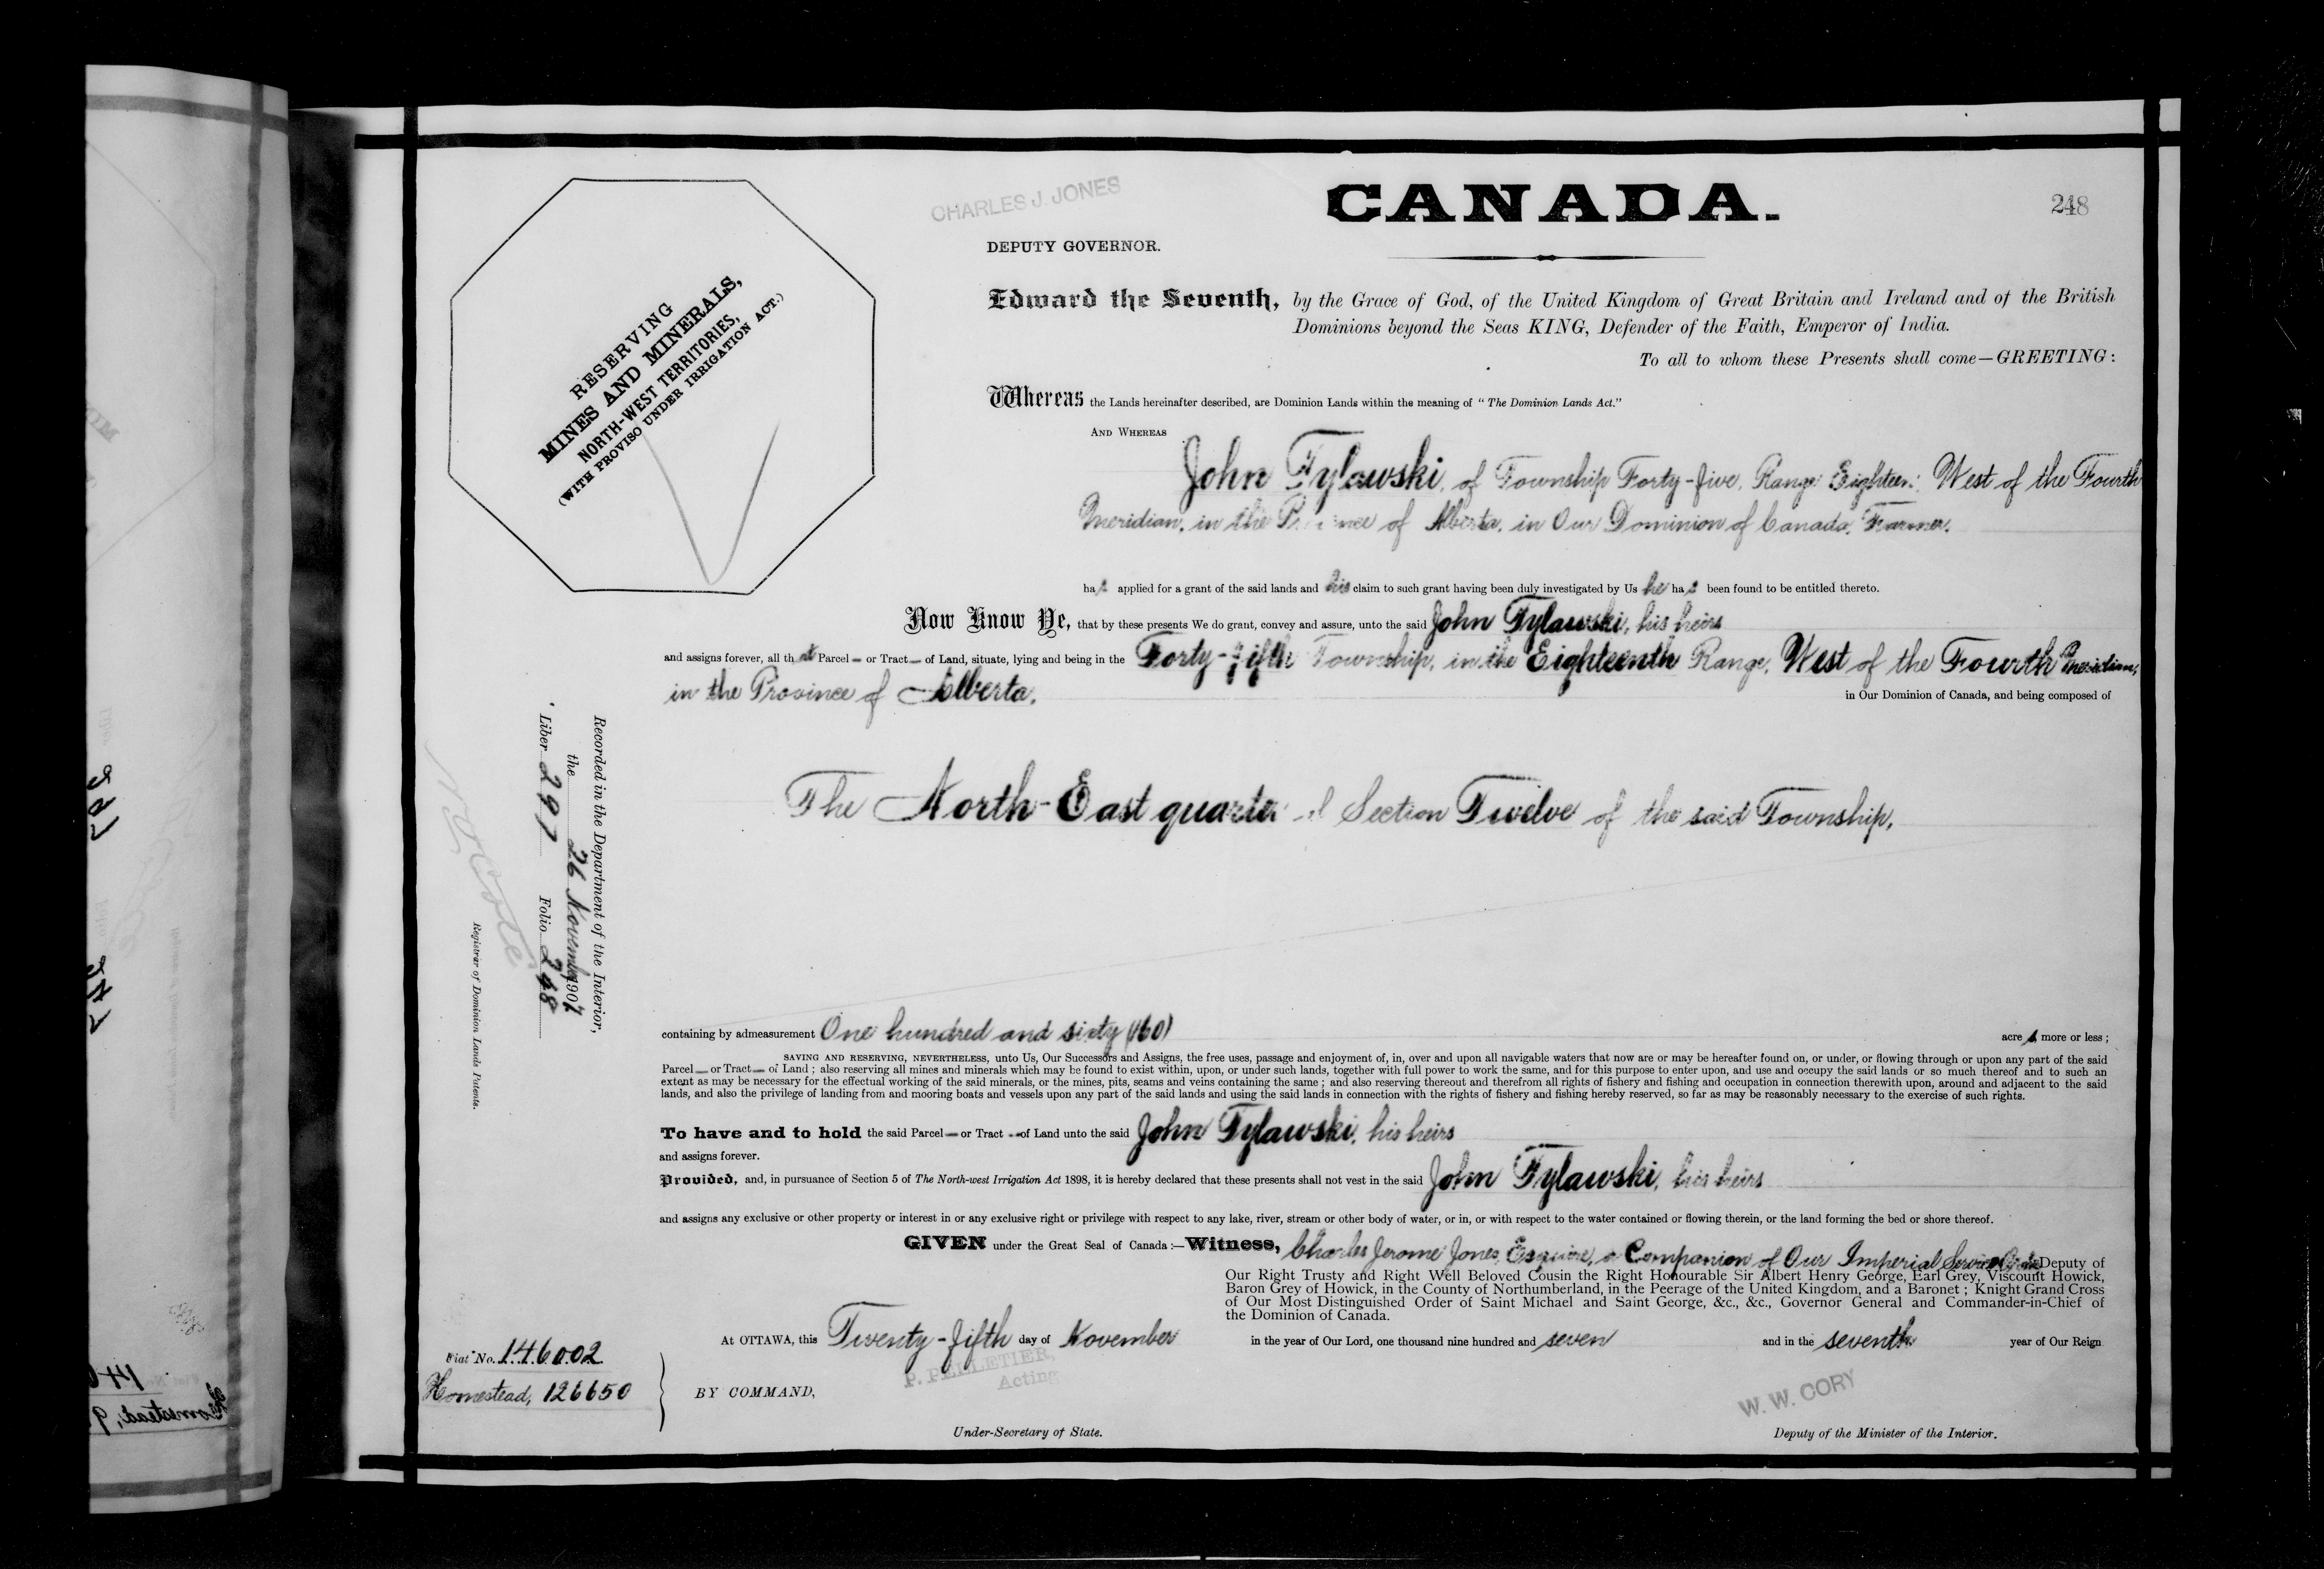 CHARLES J. JONES
CANADA.
248
DEPUTY GOVERNOR.
RESERVING
MINES AND MINERALS,
NORTH-WEST TERRITORIES,
(WITH PROVISO UNDER IRRIGATION ACT.)
Edward the Seventh, by the Grace of God, of the United Kingdom of Great Britain and Ireland and of the British
Dominions beyond the Seas KING, Defender of the Faith, Emperor of India.
To all to whom these Presents shall come—GREETING:
Whereas the Lands hereinafter described, are Dominion Lands within the meaning of "The Dominion Lands Act."
AND WHEREAS
John Tylawski, of Township Forty-five, Range Eighteen, West of the Fourth
Meridian, in the Province of Alberta, in Our Dominion of Canada, Farmer,
has applied for a grant of the said lands and his claim to such grant having been duly investigated by Us he has been found to be entitled thereto.
Now Know Ye, that by these presents We do grant, convey and assure, unto the said John Tylawski, his heirs
and assigns forever, all that Parcel or Tract of Land, situate, lying and being in the Forty-fifth Township, in the Eighteenth Range, West of the Fourth Meridian,
in the Province of Alberta, in Our Dominion of Canada, and being composed of
The North-East quarter of Section Twelve of the said Township,
Recorded in the Department of the Interior,
the 26 November 1907
Liber 297 Folio 248
Registrar of Dominion Lands Patents.
containing by admeasurement One hundred and sixty (160) acres more or less;
SAVING AND RESERVING, NEVERTHELESS, unto Us, Our Successors and Assigns, the free uses, passage and enjoyment of, in, over and upon all navigable waters that now are or may be hereafter found on, or under, or flowing through or upon any part of the said
Parcel or Tract of Land; also reserving all mines and minerals which may be found to exist within, upon, or under such lands, together with full power to work the same, and for this purpose to enter upon, and use and occupy the said lands or so much thereof and to such an
extent as may be necessary for the effectual working of the said minerals, or the mines, pits, seams and veins containing the same; and also reserving thereout and therefrom all rights of fishery and fishing and occupation in connection therewith upon, around and adjacent to the said
lands, and also the privilege of landing from and mooring boats and vessels upon any part of the said lands and using the said lands in connection with the rights of fishery and fishing hereby reserved, so far as may be reasonably necessary to the exercise of such rights.
To have and to hold the said Parcel or Tract of Land unto the said John Tylawski, his heirs
and assigns forever.
Provided, and, in pursuance of Section 5 of The North-west Irrigation Act 1898, it is hereby declared that these presents shall not vest in the said John Tylawski, his heirs
and assigns any exclusive or other property or interest in or any exclusive right or privilege with respect to any lake, river, stream or other body of water, or in, or with respect to the water contained or flowing therein, or the land forming the bed or shore thereof.
GIVEN under the Great Seal of Canada:—Witness, Charles Jerome Jones, Esquire, a Companion of Our Imperial Service Order Deputy of
Our Right Trusty and Right Well Beloved Cousin the Right Honourable Sir Albert Henry George, Earl Grey, Viscount Howick,
Baron Grey of Howick, in the County of Northumberland, in the Peerage of the United Kingdom, and a Baronet; Knight Grand Cross
of Our Most Distinguished Order of Saint Michael and Saint George, &c., &c., Governor General and Commander-in-Chief of
the Dominion of Canada.
At OTTAWA, this Twenty-fifth day of November in the year of Our Lord, one thousand nine hundred and seven and in the seventh year of Our Reign
Fiat No. 146002
Homestead, 126650
BY COMMAND,
P. PELLETIER,
Acting
Under-Secretary of State.
W. W. CORY
Deputy of the Minister of the Interior.